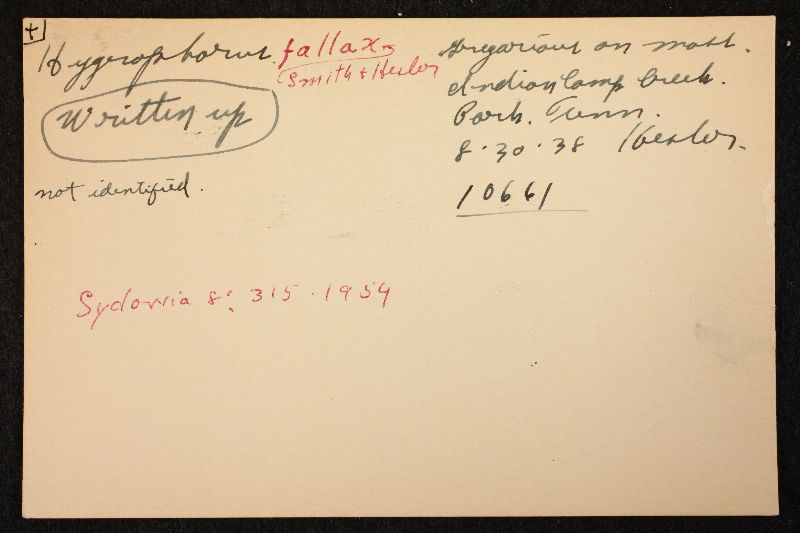 +
Hygrophorus fallax
Smith + Hesler
Written up
not identified.
Gregarious on moss.
Indian Camp Creek.
Park. Tenn.
8.30.38 Hesler.
10661
Sydowia 8: 315. 1954